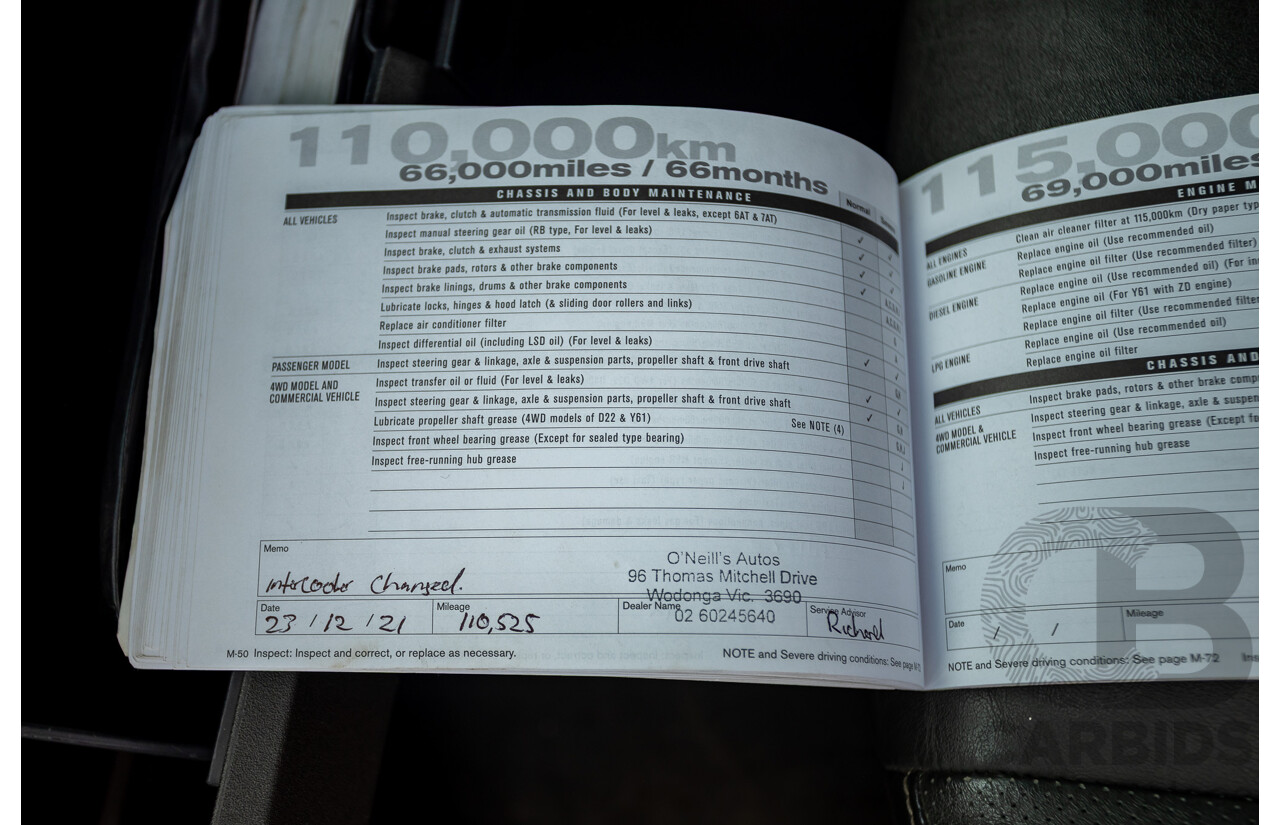 110,000km
66,000miles / 66months
CHASSIS AND BODY MAINTENANCE
Normal
ALL VEHICLES
Inspect brake, clutch & automatic transmission fluid (For level & leaks, except 6AT & 7AT)
Inspect manual steering gear oil (RB type, For level & leaks)
Inspect brake, clutch & exhaust systems
Inspect brake pads, rotors & other brake components
Inspect brake linings, drums & other brake components
Lubricate locks, hinges & hood latch (& sliding door rollers and links)
Replace air conditioner filter
Inspect differential oil (including LSD oil) (For level & leaks)
PASSENGER MODEL
Inspect steering gear & linkage, axle & suspension parts, propeller shaft & front drive shaft
4WD MODEL AND
COMMERCIAL VEHICLE
Inspect transfer oil or fluid (For level & leaks)
Inspect steering gear & linkage, axle & suspension parts, propeller shaft & front drive shaft
Lubricate propeller shaft grease (4WD models of D22 & Y61) See NOTE (4)
Inspect front wheel bearing grease (Except for sealed type bearing)
Inspect free-running hub grease
Memo
Intercooler Changed.
O'Neill's Autos
96 Thomas Mitchell Drive
Wodonga Vic. 3690
02 60245640
Date
23 / 12 / 21
Mileage
110,525
Dealer Name
Service Advisor
Richard
M-50 Inspect: Inspect and correct, or replace as necessary.
NOTE and Severe driving conditions: See page
115,000
69,000miles
ENGINE M
ALL ENGINES
Clean air cleaner filter at 115,000km (Dry paper typ
GASOLINE ENGINE
Replace engine oil (Use recommended oil)
Replace engine oil filter (Use recommended filter)
DIESEL ENGINE
Replace engine oil (Use recommended oil) (For in
Replace engine oil (For Y61 with ZD engine)
Replace engine oil filter (Use recommended filter
LPG ENGINE
Replace engine oil (Use recommended oil)
Replace engine oil filter
CHASSIS AND
ALL VEHICLES
Inspect brake pads, rotors & other brake comp
4WD MODEL &
COMMERCIAL VEHICLE
Inspect steering gear & linkage, axle & suspen
Inspect front wheel bearing grease (Except fo
Inspect free-running hub grease
Memo
Date
/ /
Mileage
NOTE and Severe driving conditions: See page M-72 Ins
CARBIDS